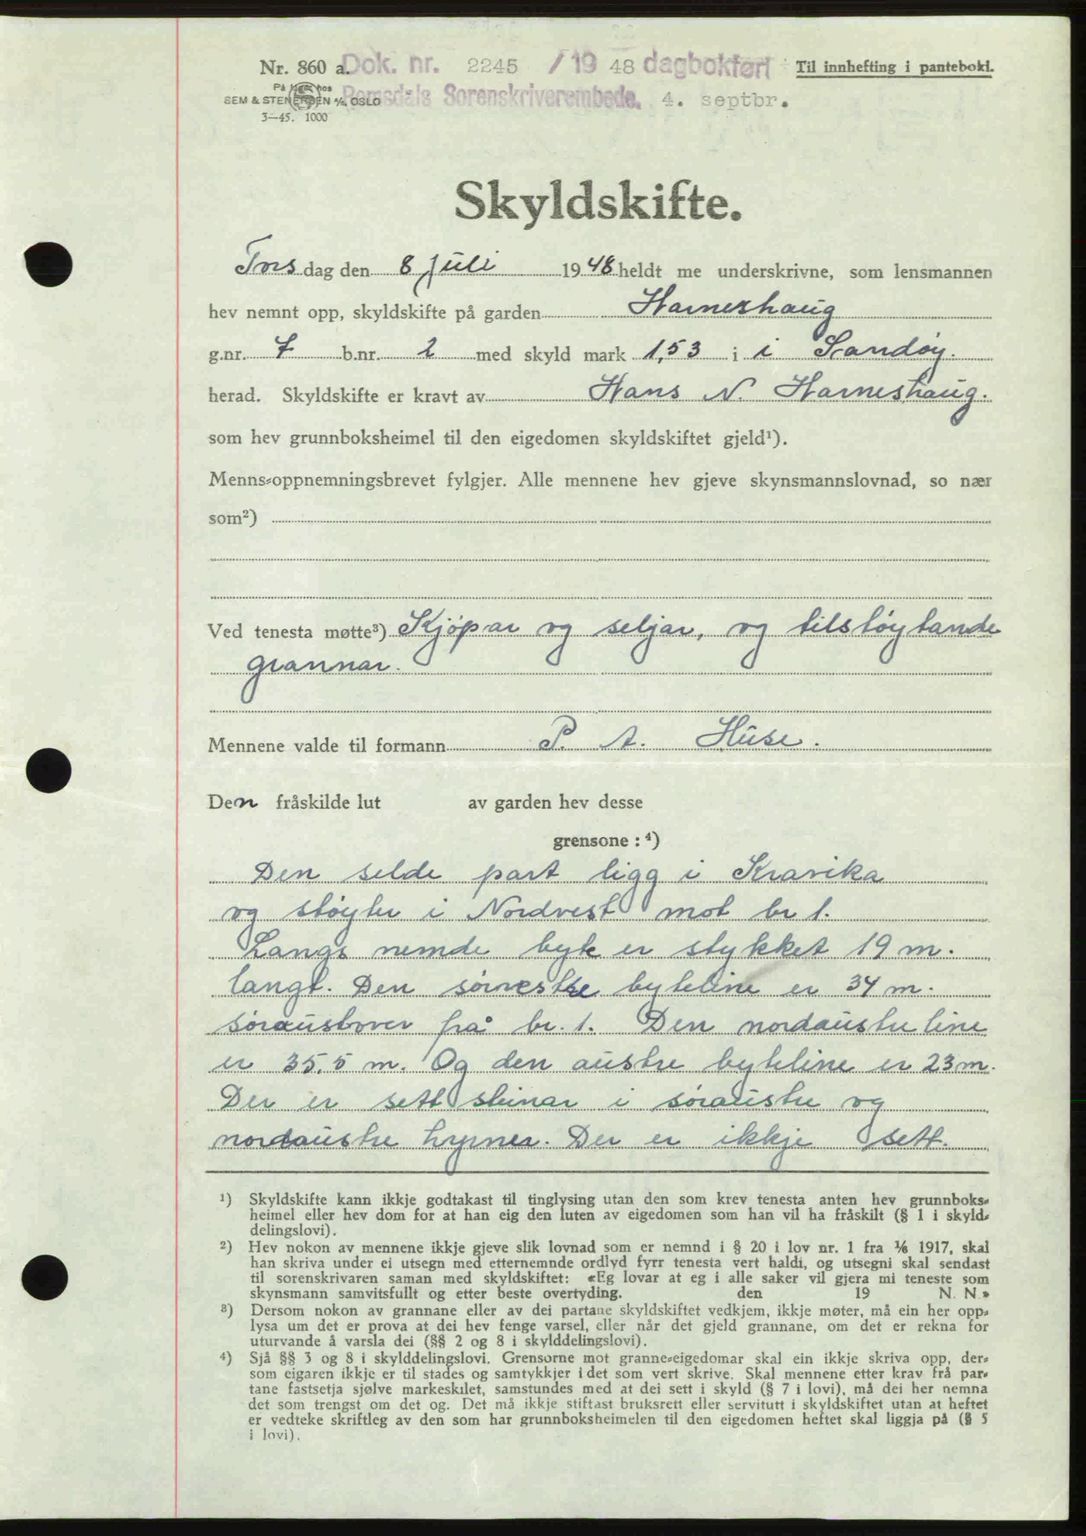 Nr. 860 a. Dok. nr. 2245 / 19 48 dagbokført Til innhefting i pantebok.
På lager hos Romsdals Sorenskriverembede. 4. septbr.
SEM & STENERSEN A/S, OSLO
3—45. 1000
Skyldskifte.
Tors dag den 8 Juli 19 48 heldt me underskrivne, som lensmannen
hev nemnt opp, skyldskifte på garden Harneshaug
g.nr. 7 b.nr. 2 med skyld mark 1,53 i i Sandøy.
herad. Skyldskifte er kravt av Hans N. Harneshaug.
som hev grunnboksheimel til den eigedomen skyldskiftet gjeld¹).
Menns-oppnemningsbrevet fylgjer. Alle mennene hev gjeve skynsmannslovnad, so nær
som²)
Ved tenesta møtte³) Kjøpar og seljar, og tilstøytande
grannar.
Mennene valde til formann P. A. Huse.
Den fråskilde lut av garden hev desse
grensone : ⁴)
Den selde part ligg i Kravika
og støyter i Nordvest mot br 1.
Langs nemde byte er stykket 19 m.
langt. Den sørvestre byteline er 34 m.
søraustover frå br. 1. Den nordaustre line
er 35,5 m. Og den austre byteline er 23 m.
Der er sett steinar i søraustre og
nordaustre hyrner. Der er ikkje sett.
¹) Skyldskifte kann ikkje godtakast til tinglysing utan den som krev tenesta anten hev grunnboks-
heimel eller hev dom for at han eig den luten av eigedomen som han vil ha fråskilt (§ 1 i skyld-
delingslovi).
²) Hev nokon av mennene ikkje gjeve slik lovnad som er nemnd i § 20 i lov nr. 1 fra 1/6 1917, skal
han skriva under ei utsegn med etternemnde ordlyd fyrr tenesta vert haldi, og utsegni skal sendast
til sorenskrivaren saman med skyldskiftet: «Eg lovar at eg i alle saker vil gjera mi teneste som
skynsmann samvitsfullt og etter beste overtyding. den 19 N. N.»
³) Dersom nokon av grannane eller av dei partane skyldskiftet vedkjem, ikkje møter, må ein her opp-
lysa um det er prova at dei hev fenge varsel, eller når det gjeld grannane, om det er rekna for
uturvande å varsla dei (§§ 2 og 8 i skylddelingslovi).
⁴) Sjå §§ 3 og 8 i skylddelingslovi. Grensorne mot granne-eigedomar skal ein ikkje skriva opp, der-
som eigaren ikkje er til stades og samtykkjer i det som vert skrive. Skal mennene etter krav frå par-
tane fastsetja sjølve markeskilet, samstundes med at dei sett i skyld (§ 7 i lovi), må dei her nemna
det som trengst om det og. Det må ikkje stiftast bruksrett eller servitutt i skyldskiftet utan at heftet
er vedteke skriftleg av den som har grunnboksheimelen til den eigedomen heftet skal liggja på (§ 5
i lovi).